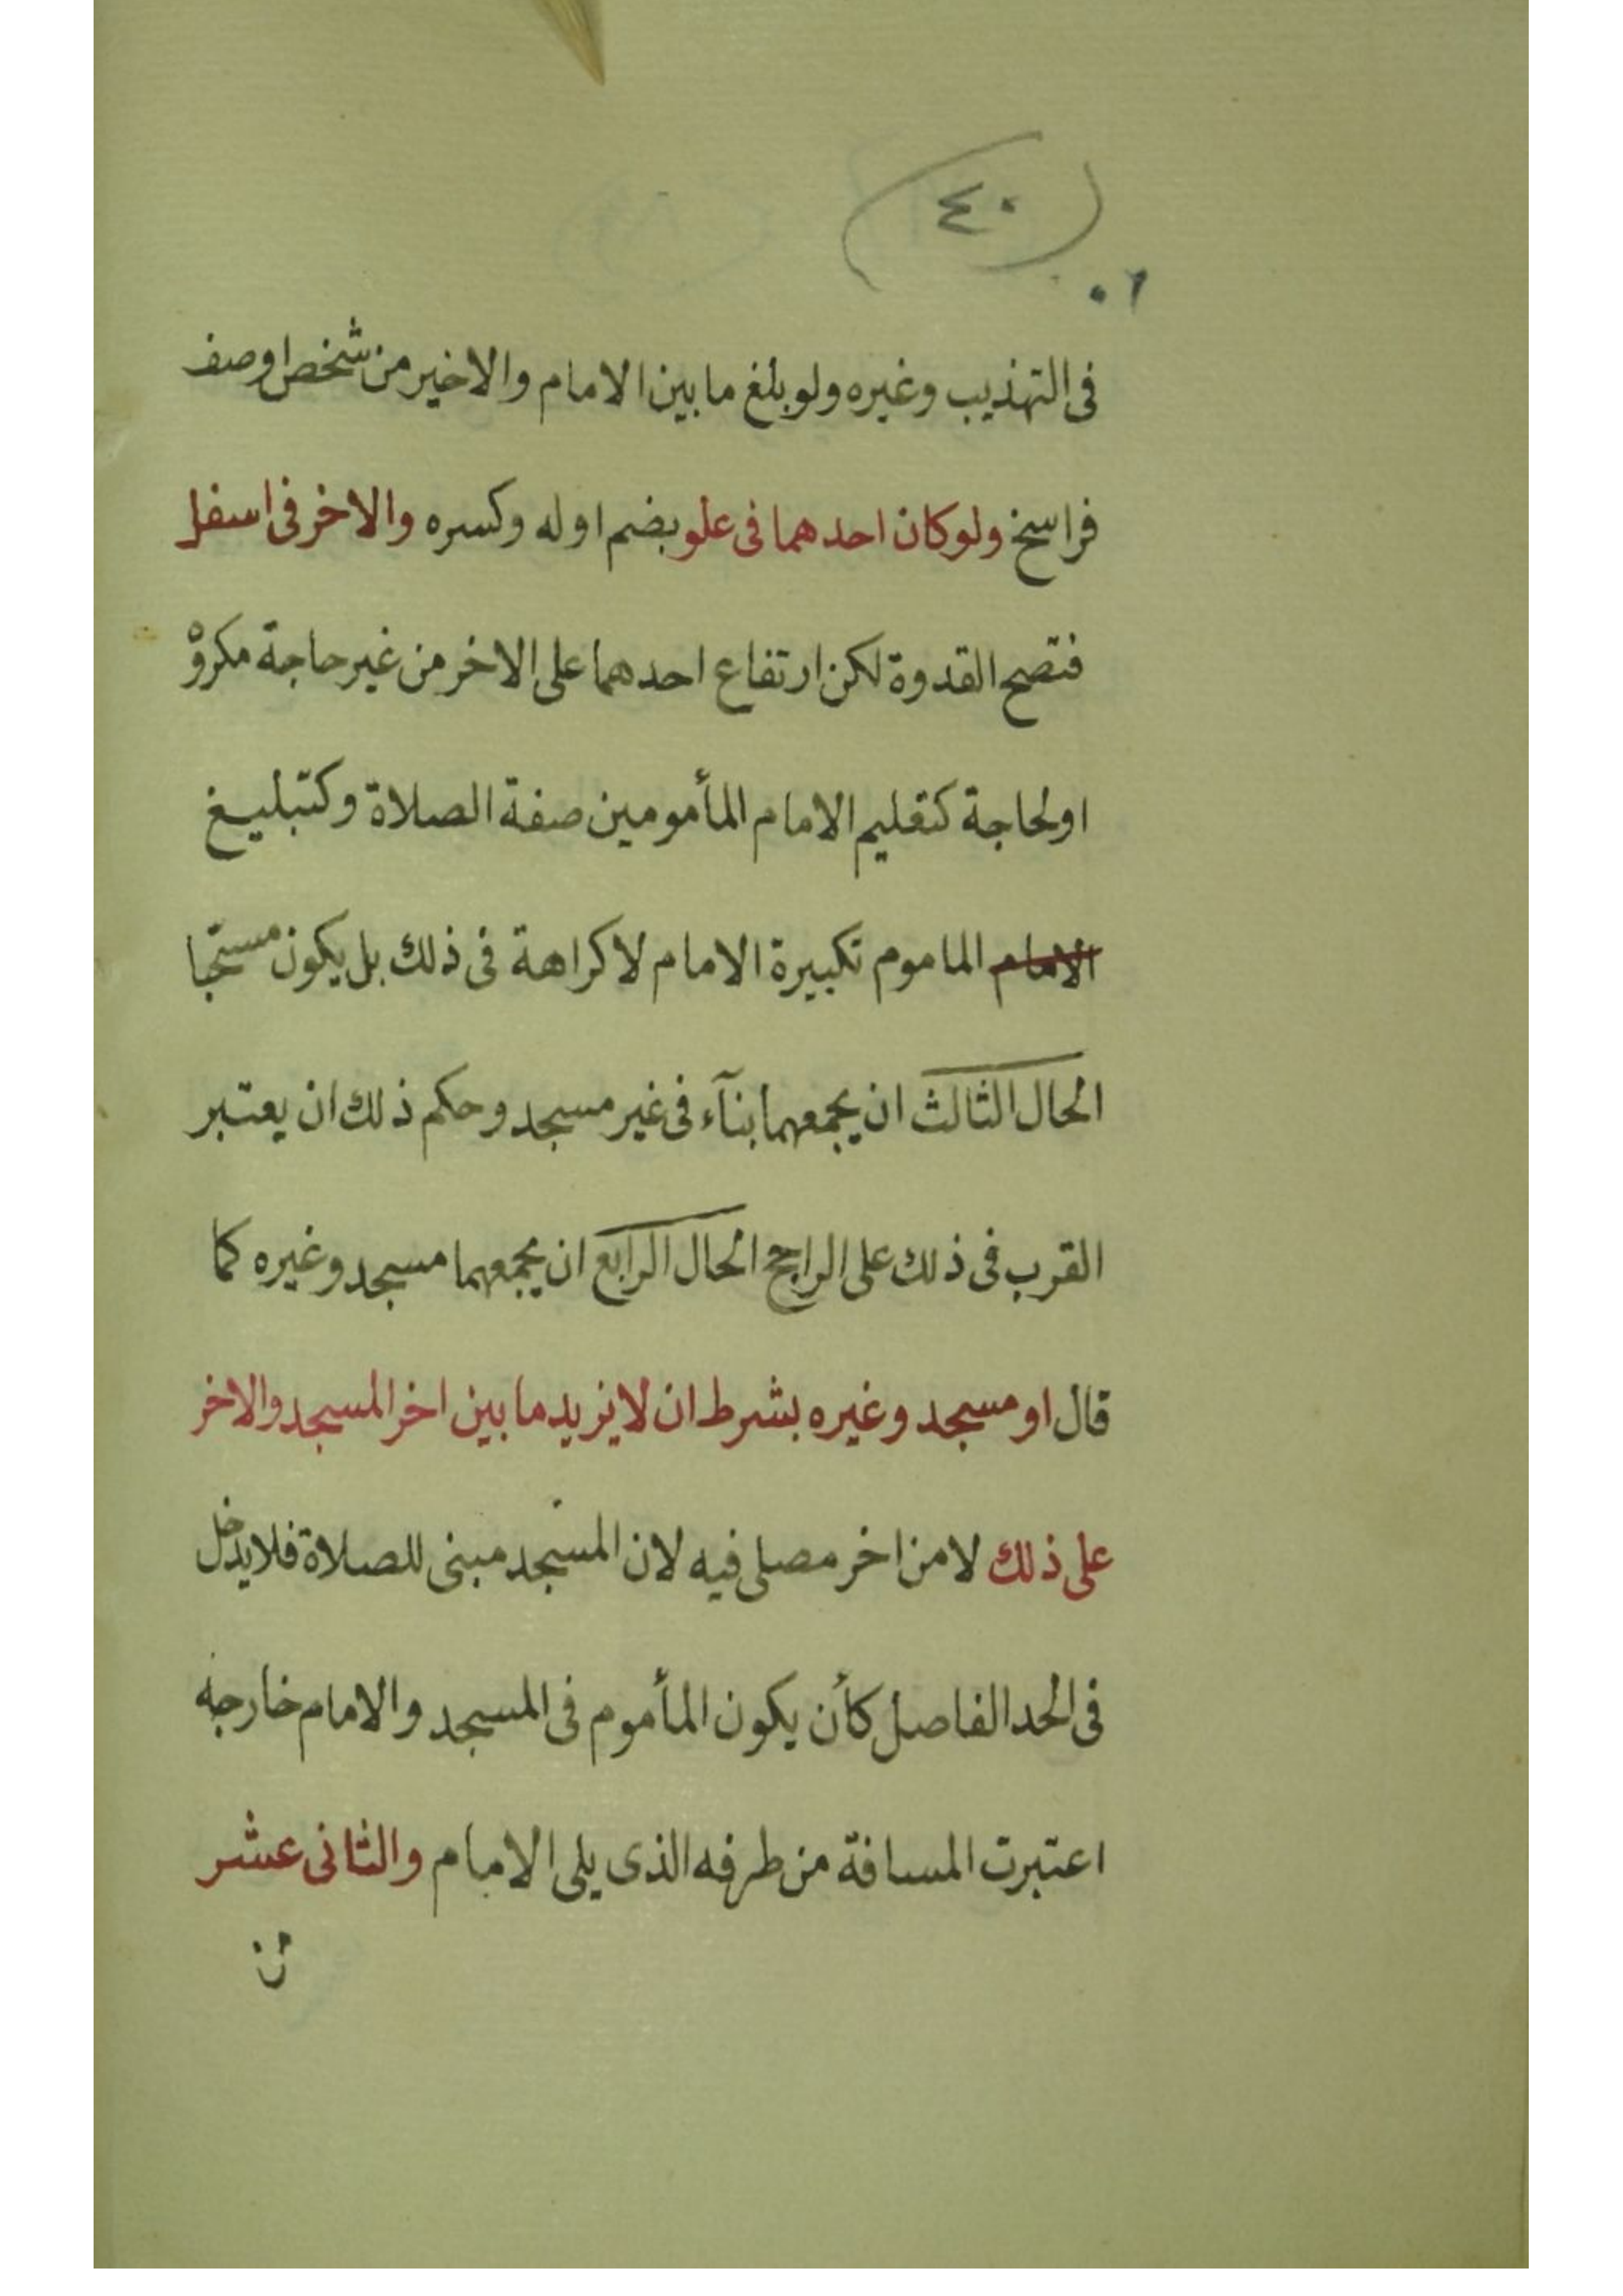 ٤٠
فى التهذيب وغيره ولو بلغ ما بين الامام والاخير من شخص او صف
فراسخ ولو كان احدهما فى علو بضم اوله وكسره والاخر فى اسفل
فتصح القدوة لكن ارتفاع احدهما على الاخر من غير حاجة مكروه
او لحاجة كتعليم الامام المأمومين صفة الصلاة وكتبليغ
الامام الماموم تكبيرة الامام لا كراهة فى ذلك بل يكون مستحبا
الحال الثالث ان يجمعهما بنآء فى غير مسجد وحكم ذلك ان يعتبر
القرب فى ذلك على الراجح الحال الرابع ان يجمعهما مسجد وغيره كما
قال او مسجد وغيره بشرط ان لا يزيد ما بين اخر المسجد والاخر
على ذلك لا من اخر مصلى فيه لان المسجد مبنى للصلاة فلا يدخل
فى الحد الفاصل كأن يكون المأموم فى المسجد والامام خارجه
اعتبرت المسافة من طرفه الذى يلى الامام والثانى عشر